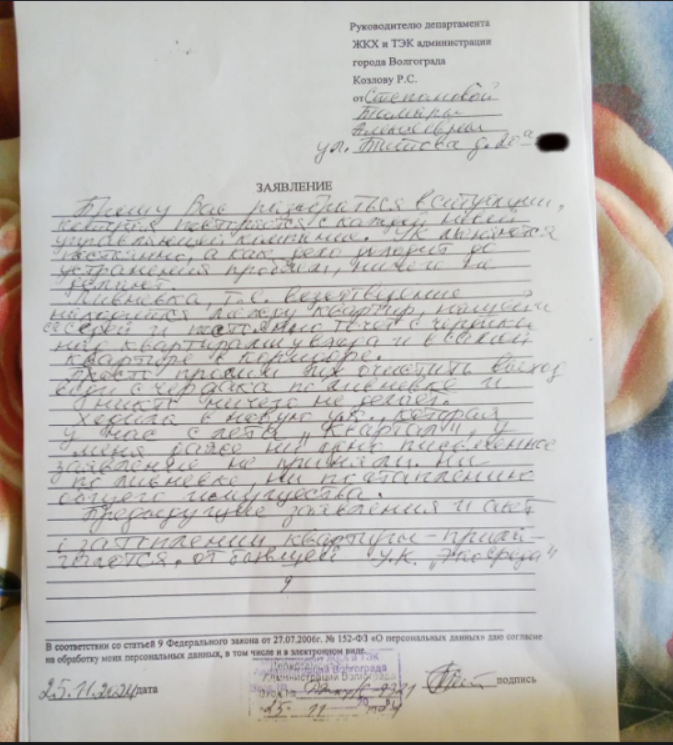 Руководителю департамента
ЖКХ и ТЭК администрации
города Волгограда
Козлову Р.С.
от Степановой
Тамары
Алексеевны
ул. Титова д. 20а
ЗАЯВЛЕНИЕ
Прошу Вас разобраться в ситуации,
которая повторяется с каждой новой
управляющей компание. УК меняются
постоянно, а как дело доходит до
устранения проблем, ничего не
делают.
Ливневка, т.е.
находится между квартир,
и постоянно течет с чердака
над квартирами у входа и в самой
квартире в коридоре.
Просто просим их очистить выход
воды с чердака по ливневке и
никто ничего не делает.
Ходила в новую у.к., которая
у нас с лета "Квартал", у
меня даже ни одно письменное
заявление не приняли. Ни
по ливневке, ни по отоплению
общего имущества.
Предыдущие заявления и акт
о затоплении квартиры - прилагается, от бывшей У.К. "Экосреда"
В соответствии со статьей 9 Федерального закона от 27.07.2006г. № 152-ФЗ «О персональных данных» даю согласие
на обработку моих персональных данных, в том числе и в электронном виде.
25.11.2024 дата подпись
ЖКХ и ТЭК
администрации Волгограда
25 11